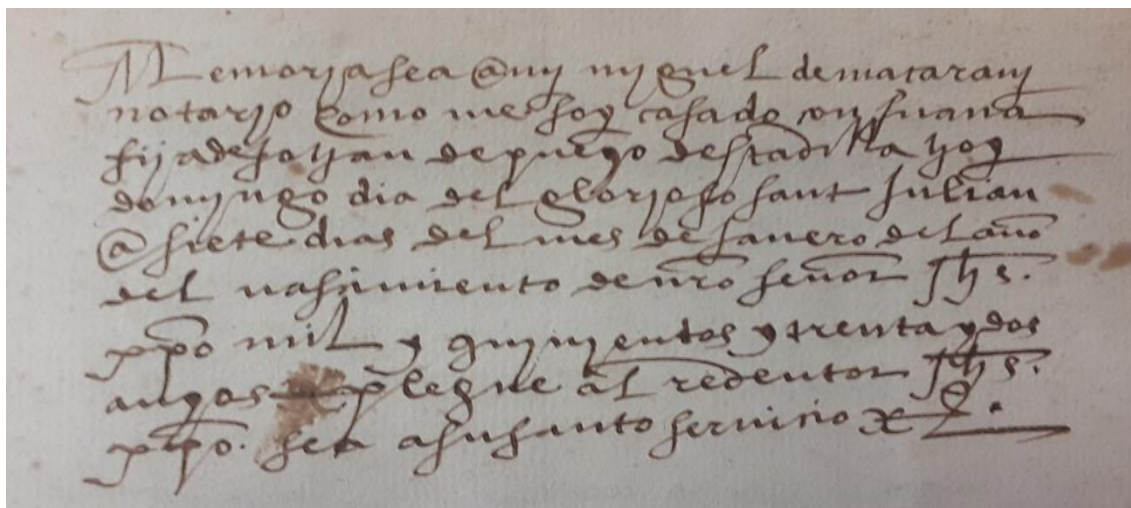 Memoria sea a mi miguel de mataram
notario como me soy casado con Juana
fija de Johan de pueyo de stadilla hoy
domingo dia del glorioso sant Julian
a siete dias del mes de Janero del año
del nasimiento de nro señor Jhs.
xpo mil y quinientos y treinta y dos
anyos plegue al redentor Jhs.
xpo. sea a su santo servicio